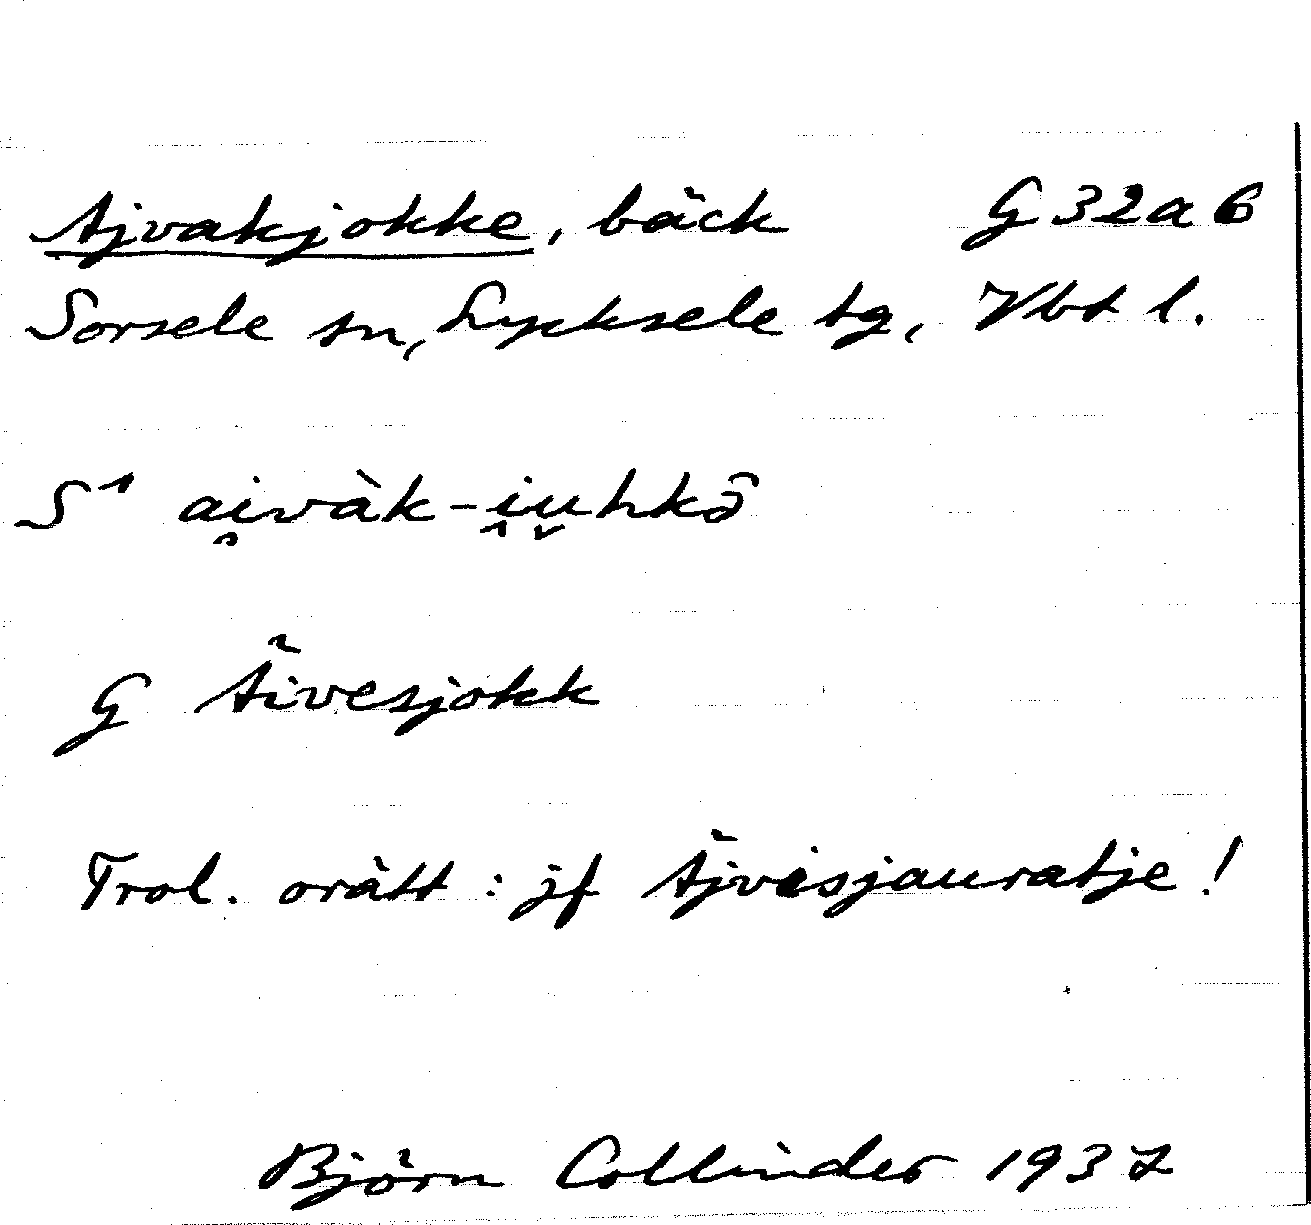 Ajvakjokke, bäck G 32 a b
Sorsele sn, Lycksele tg, Vbt l.
S¹ ai̭vàk-i̭u̬hkô
G Äivesjokk
Trol. orätt: jf Äjvisjauratje!
Björn Collinder 1937